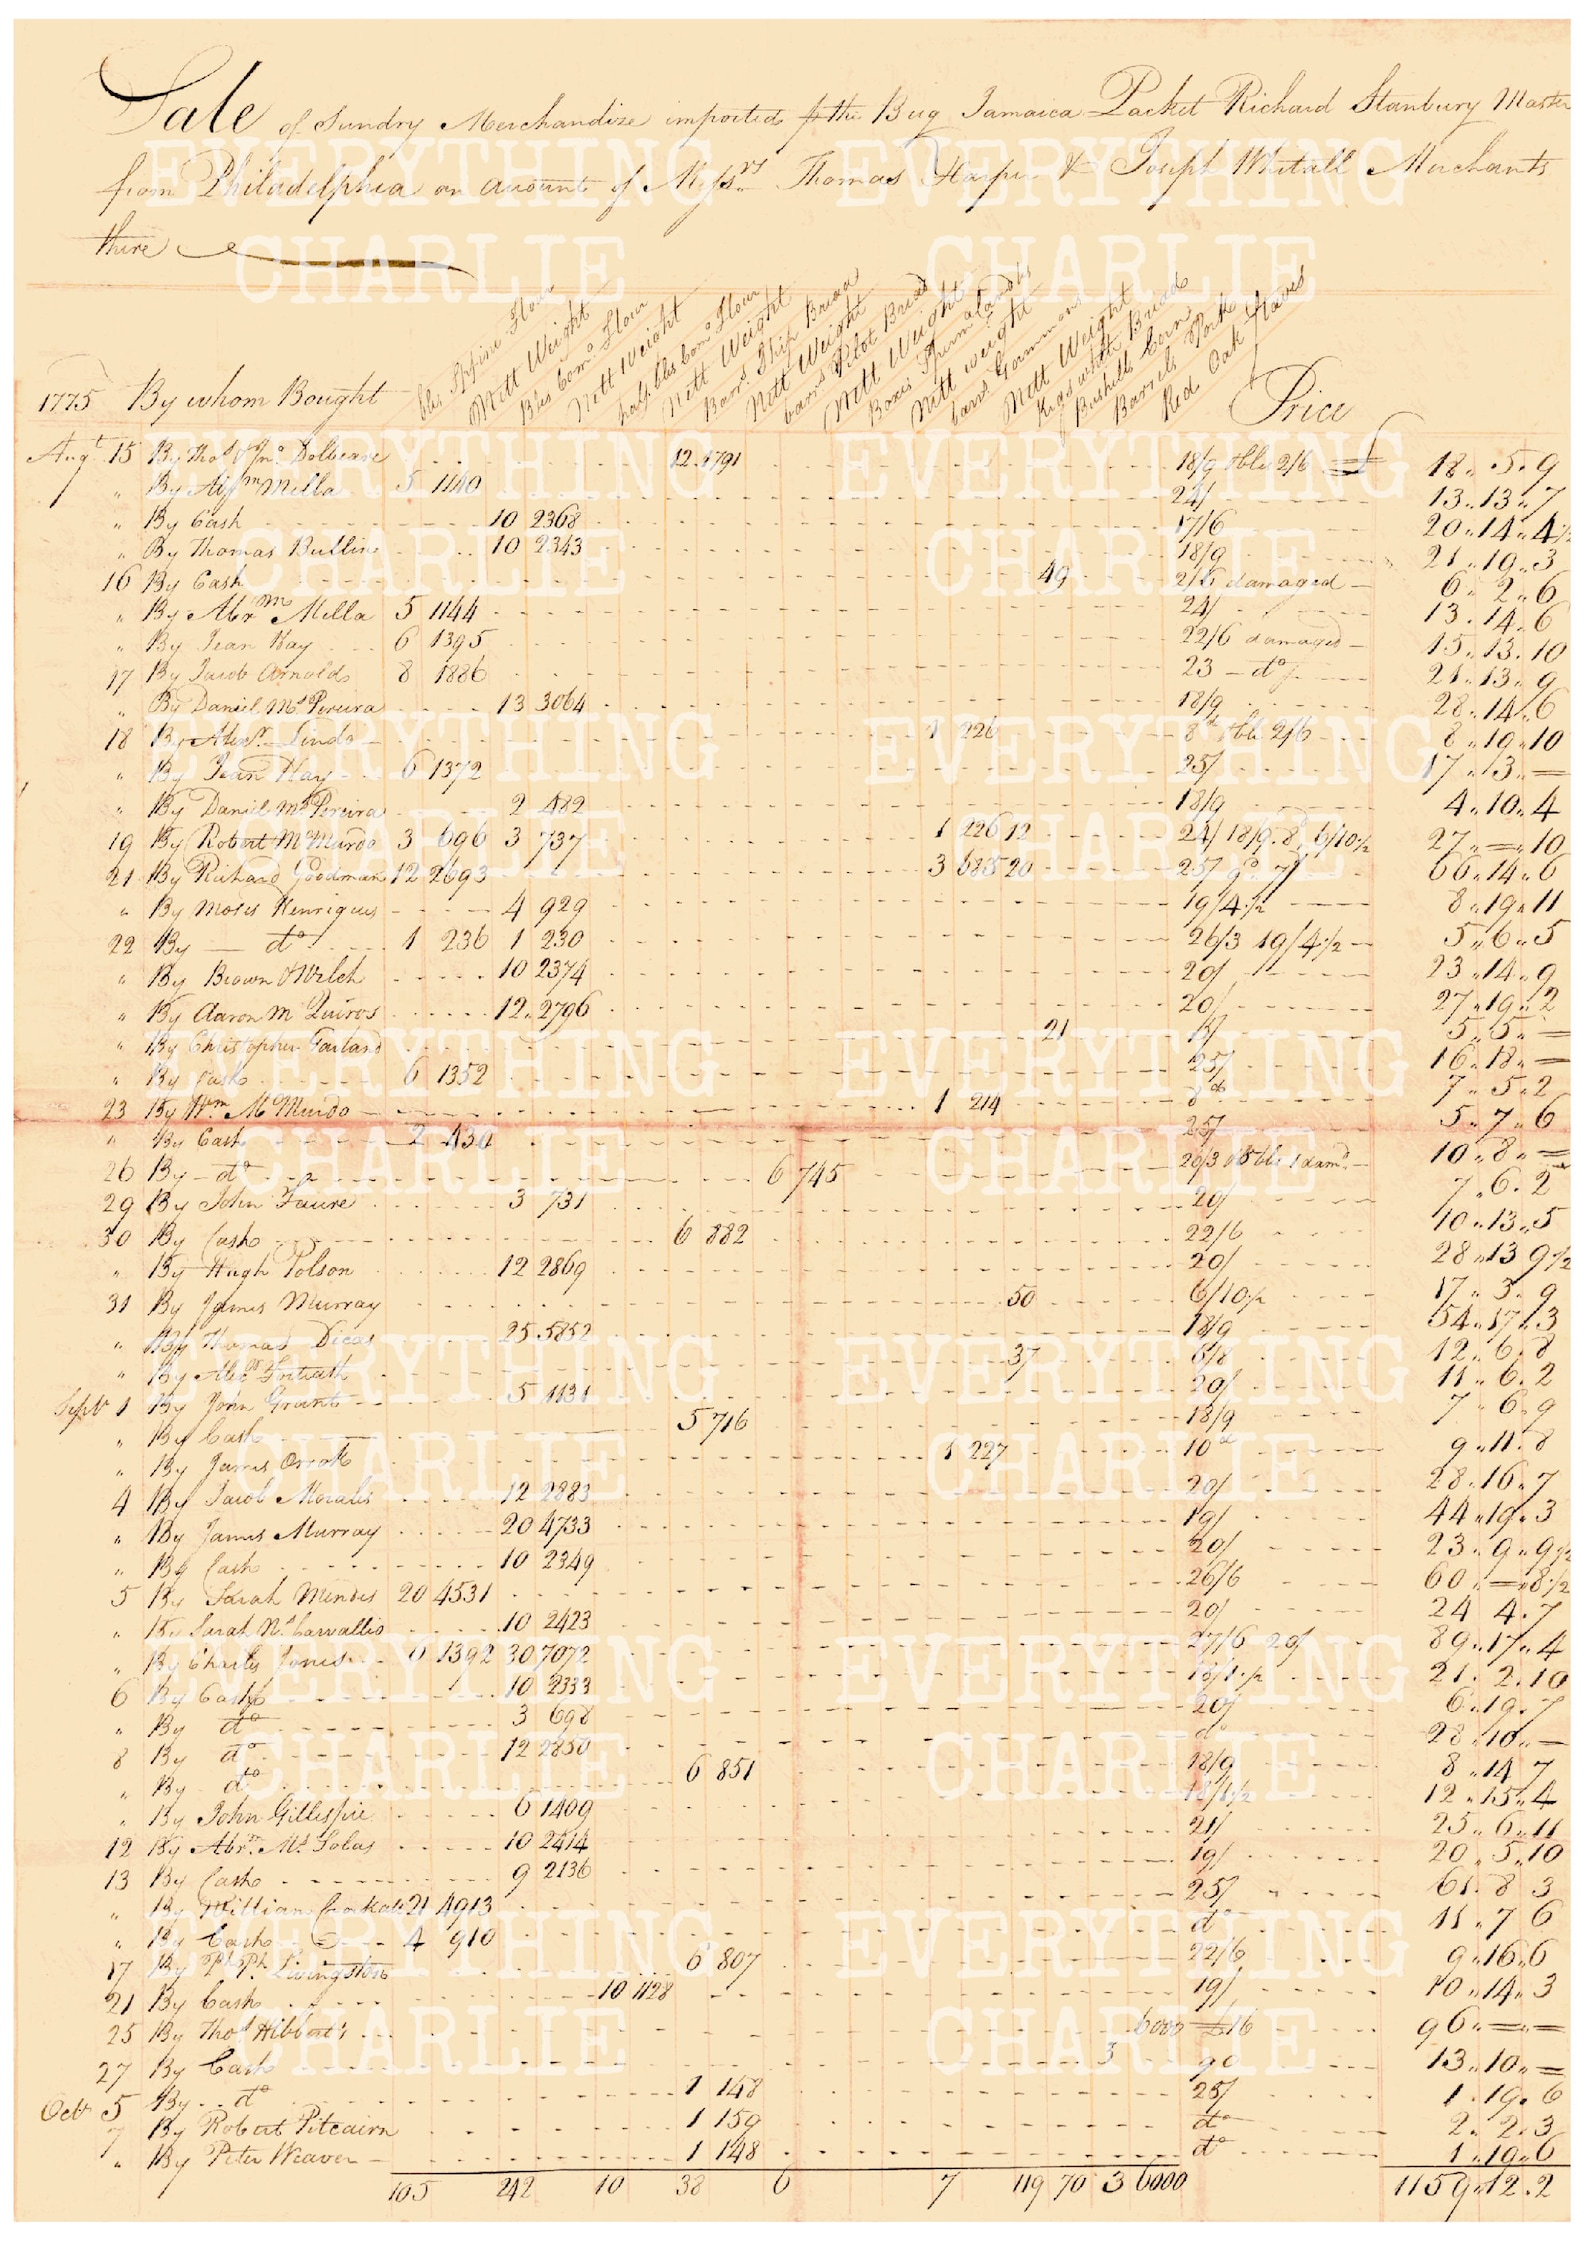 Sale of Sundry Merchandize imported p the Brig Jamaica Packet Richard Stanbury Master
from Philadelphia on account of Messrs Thomas Harper & Joseph Whitall Merchants
there
bls Sfine Flour
Nett Weight
Bbls Comn Flour
Nett Weight
half bbls Comn Flour
Nett Weight
Barrs Ship Bread
Nett Weight
barrs Pilot Bread
Nett Weight
Boxes Sperm Candles
Nett weight
barrs Gammons
Nett Weight
Kegs white Bread
Bushells Corn
Barrels Pork
Red Oak Staves
1775 By whom Bought Price
Augt 15 By Thos & Jno Dolbeare 12 1791 18/9 bbls 2/6 £ 18 .. 5 .. 9
" By Abrm Mella 5 1140 24/ 13 .. 13 .. 7
" By Cash 10 2368 17/6 20 .. 14 .. 4 1/2
" By Thomas Bullin 10 2343 18/9 21 .. 19 .. 3
16 By Cash 49 2/6 damaged 6 .. 2 .. 6
" By Abrm Mella 5 1144 24/ 13 .. 14 .. 6
" By Jean Hay 6 1395 22/6 damaged 15 .. 13 .. 10
17 By Jacob Arnolds 8 1886 23 - do 21 .. 13 .. 9
" By Daniel Ms Pereira 13 3064 18/9 28 .. 14 .. 6
18 By Alexr Lindo 1 226 8d bbl 2/6 8 .. 19 .. 10
" By Jean Hay 6 1372 25/ 17 .. 3 .. =
" By Daniel Ms Pereira 2 482 18/9 4 .. 10 .. 4
19 By Robert McMurdo 3 696 3 737 1 226 12 24/ 18/9. 8d 6/10 1/2 27 .. = .. 10
21 By Richard Goodman 12 2693 3 685 20 25/ 9d 7/ 66 .. 14 .. 6
" By Moses Henriques 4 929 19/4 1/2 8 .. 19 .. 11
22 By do 1 236 1 230 26/3 19/4 1/2 5 .. 6 .. 5
" By Brown & Welch 10 2374 20/ 23 .. 14 .. 9
" By Aaron M Quiros 12 2796 20/ 27 .. 19 .. 2
" By Christopher Garland 21 5/ 5 .. 5 .. =
" By Cash 6 1352 25/ 16 .. 18 .. =
23 By Wm McMurdo 1 214 8d 7 .. 5 .. 2
" By Cash 2 430 25/ 5 .. 7 .. 6
26 By do 6 745 26/3 1 damd 10 .. 8 .. =
29 By John Faure 3 731 20/ 7 .. 6 .. 2
30 By Cash 6 882 22/6 10 .. 13 .. 5
" By Hugh Polson 12 2869 20/ 28 .. 13 9 1/2
31 By James Murray 50 6/10 1/2 17 .. 3 .. 9
" By Thomas Dicas 25 5852 18/9 54 .. 17 .. 3
" By Alexr 37 6/8 12 .. 6 .. 8
Septr 1 By John Grant 5 1131 20/ 11 .. 6 .. 2
" By Cash 5 716 18/9 7 .. 6 .. 9
" By James Orrok 1 227 10d 9 .. 11 .. 8
4 By Jacob Morales 12 2883 20/ 28 .. 16 .. 7
" By James Murray 20 4733 19/ 44 .. 19 .. 3
" By Cash 10 2349 20/ 23 .. 9 .. 9 1/2
5 By Sarah Mendes 20 4531 26/6 60 .. = .. 8 1/2
" By Sarah Ns Carvallis 10 2423 20/ 24 4 .. 7
" By Charles Jones 6 1392 30 7072 27/6 20/ 89 .. 17 .. 4
6 By Cash 10 2333 18/1 1/2 21 .. 2 .. 10
" By do 3 698 20/ 6 .. 19 .. 7
8 By do 12 2850 do 28 .. 10 .. =
" By do 6 851 18/9 8 .. 14 7
" By John Gillespie 6 1409 18/1 1/2 12 .. 15 .. 4
12 By Abrm Ms Solas 10 2414 21/ 25 .. 6 .. 11
13 By Cash 9 2136 19/ 20 .. 5 .. 10
" By William Cookale 21 4913 25/ 61 .. 8 3
" By Cash 4 910 do 11 .. 7 6
17 By Php Ph Livingston 6 807 22/6 9 .. 16 .. 6
21 By Cash 10 1128 19/ 10 .. 14 .. 3
25 By Thos Hibbert 6000 £16 96 .. = .. =
27 By Cash 3 90 13 .. 10 .. =
Octr 5 By do 1 148 25/ 1 .. 19 .. 6
7 By Robert Pitcairn 1 159 do 2 .. 2 .. 3
" By Peter Weaver 1 148 do 1 .. 19 .. 6
105 242 10 38 6 7 119 70 3 6000 1159 .. 12 .. 2
EVERYTHING CHARLIE
EVERYTHING CHARLIE